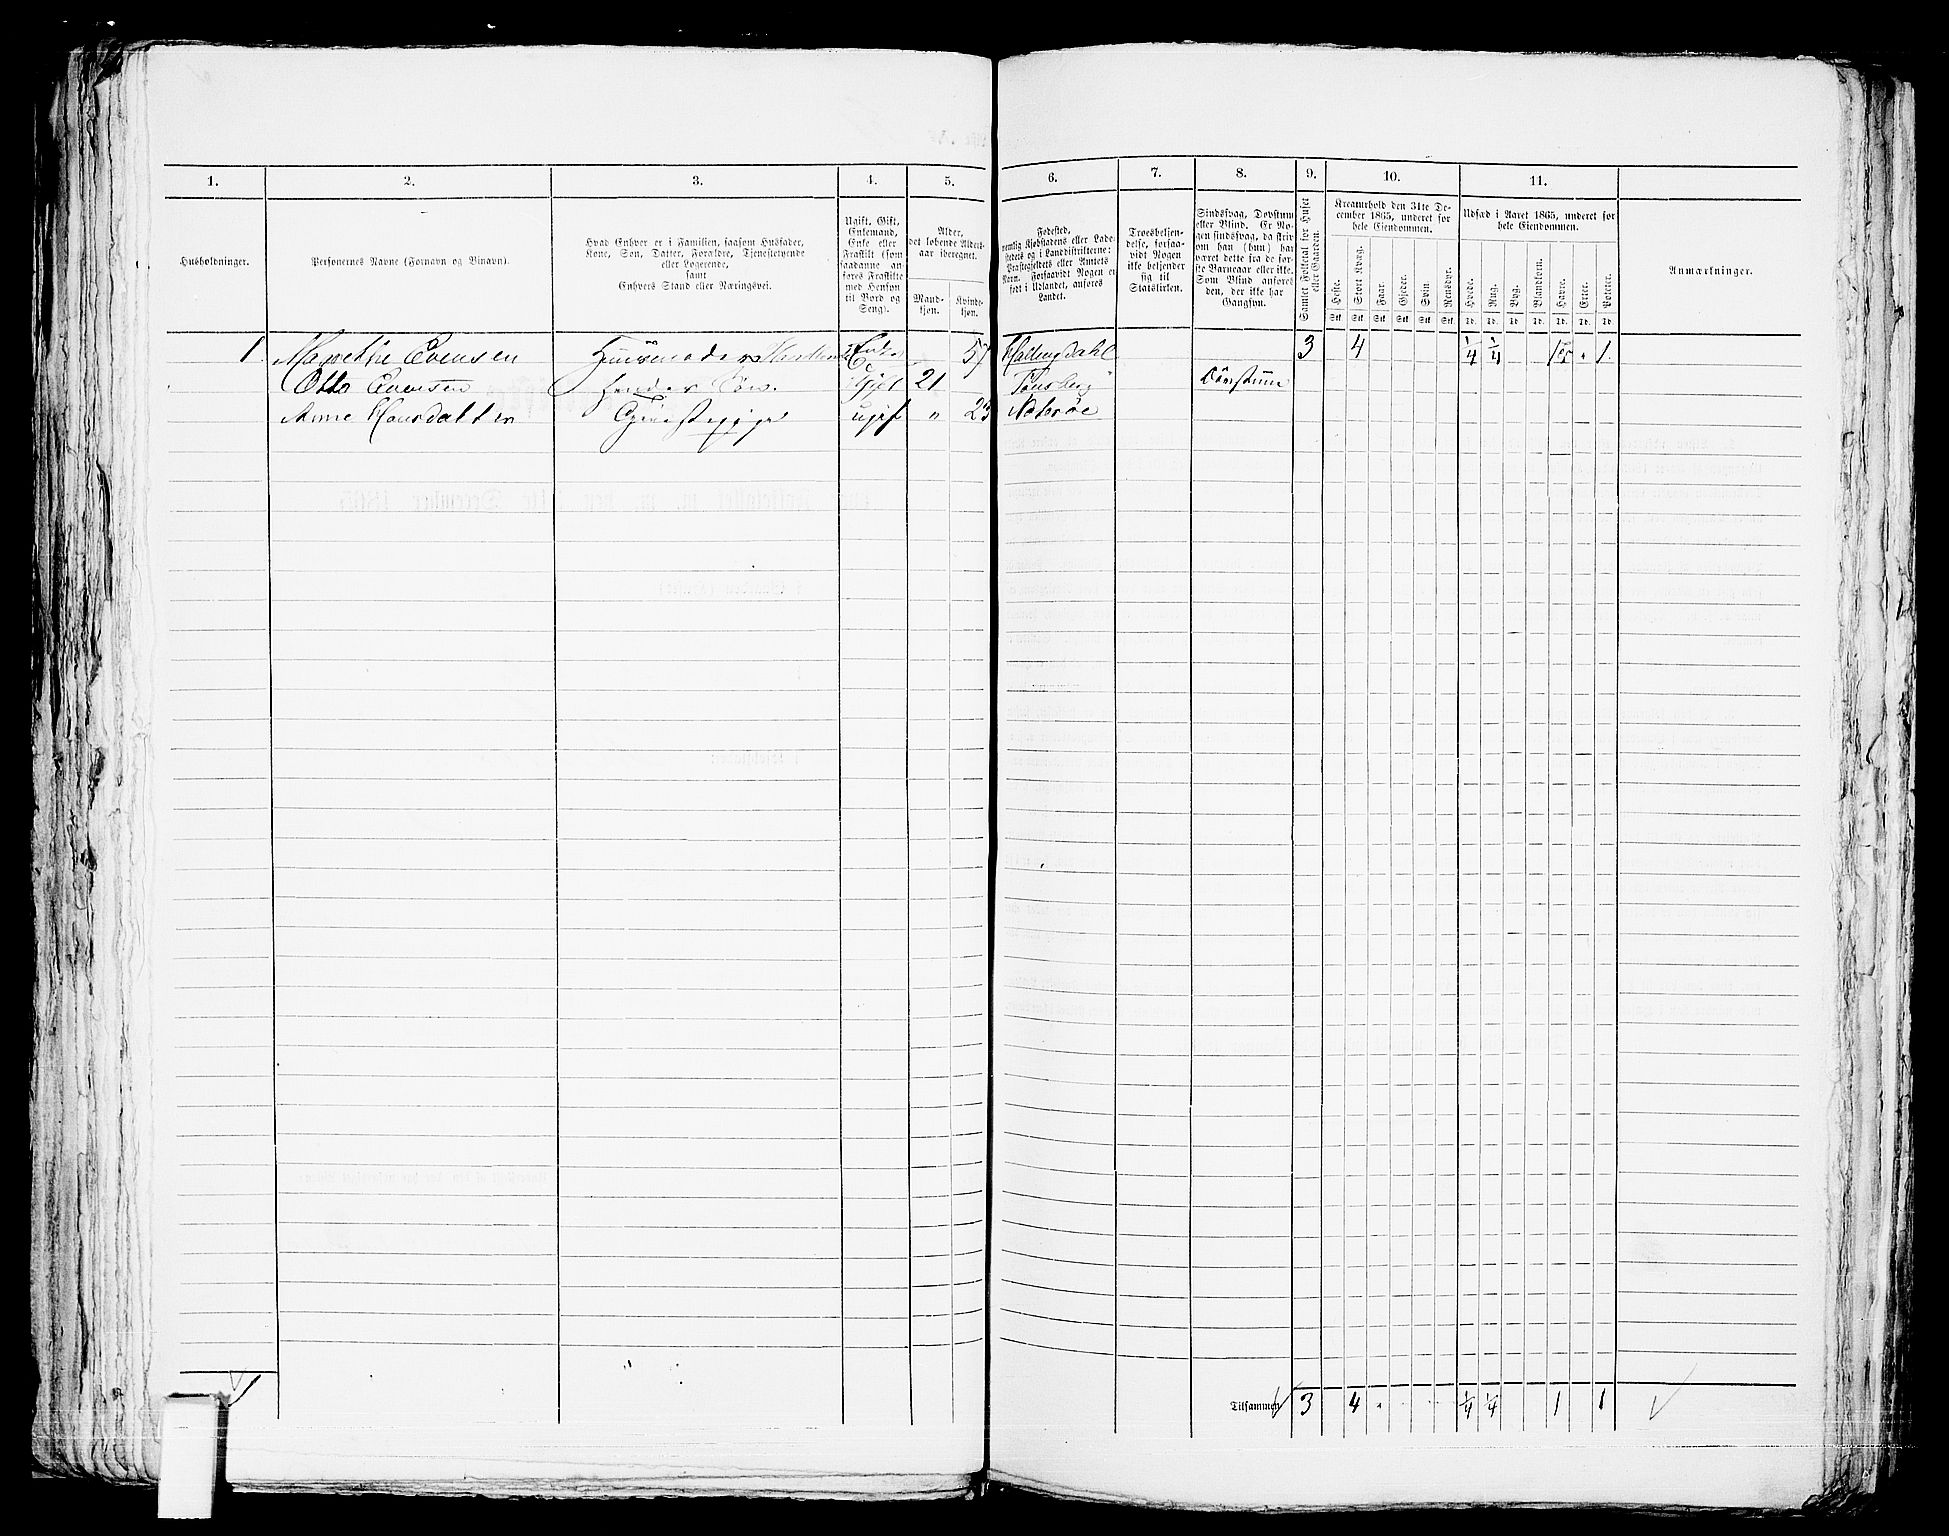 1. 2. 3. 4. 5. 6. 7. 8. 9. 10. 11.
Husholdninger.
Personernes Navne (Fornavn og Vinavn).
Hvad Enhver er i Familien, saasom Husfader,
Kone, Søn, Datter, Forældre, Tjenestetyende
eller Logerende,
samt
Enhvers Stand eller Næringsvei.
Ugift, Gift,
Enkemand,
Enke eller
Fraskilt (som
saadanne an-
føres Fraskilte
med Hensyn
til Bord og
Seng).
Alder,
det løbende Alders-
aar iberegnet.
Mand-
kjøn.
Kvinde-
kjøn.
Fødested,
nemlig Kjøbstadens eller Lade-
stedets og i Landdistrikterne:
Præstegjeldets eller Amtets
Navn. Forsaavidt Nogen er
født i Udlandet, anføres
Landet.
Troesbekjen-
delse, forsaa-
vidt Nogen
ikke bekjender
sig til
Statskirken.
Sindssvag, Døvstum
eller Blind. Er No-
gen sindssvag, da skriv
om han (hun) har
været dette fra de før-
ste Barneaar eller ikke.
Som Blind anføres
den, der ikke har
Gangsyn.
Samlet Folketal for Huset
eller Gaarden.
Kreaturhold den 31te De-
cember 1865, underet for
hele Eiendommen.
Heste. Stort Kvæg. Faar. Gjeder. Svin. Rensdyr.
Stk Stk Stk Stk Stk Stk
Udsæd i Aaret 1865, underet for
hele Eiendommen.
Hvede. Rug. Byg. Blandkorn. Havre. Erter. Poteter.
Td. Td. Td. Td. Td. Td. Td.
Anmærkninger.
1. Magrethe Evensen Enke 57 Hallingdahl 3 4 1/4 1/4 1
Otto Evensen hendes Søn. Ugift 21 Tønsberg Døvstum
Anne Hansdatter Tjenestepige ugift " 23 Nøterøe
1
Tilsammen 3 4 1/4 1/4 1 1